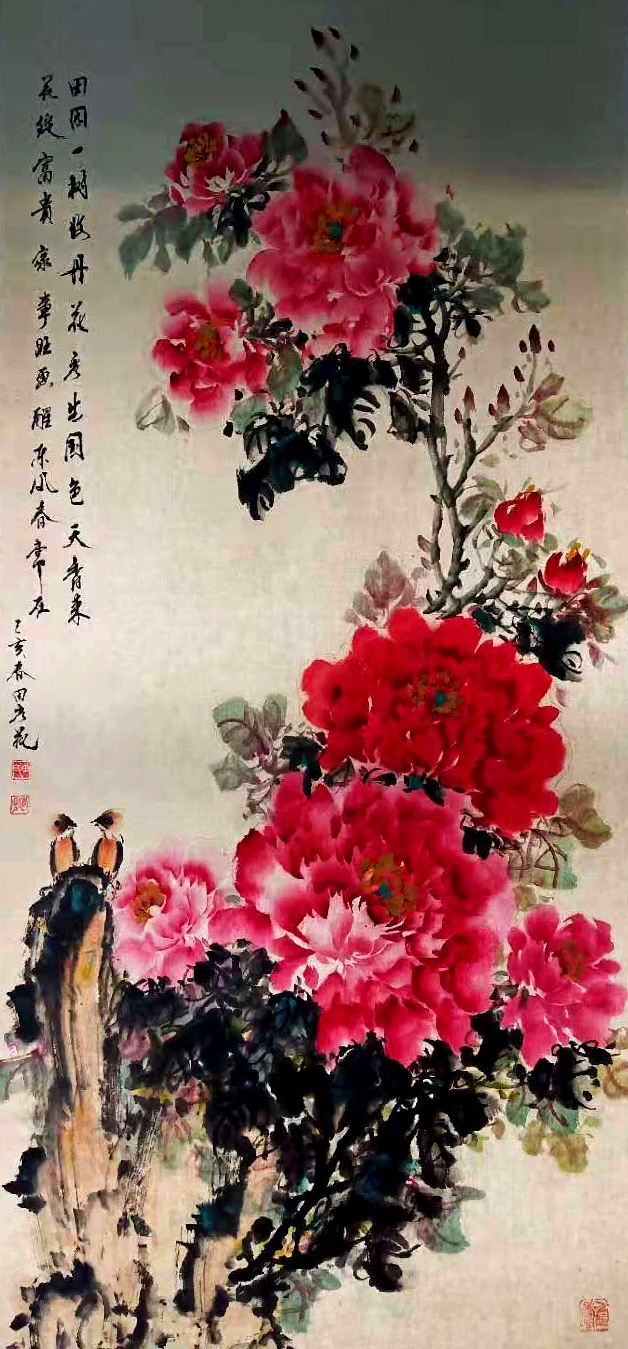 田园一树牡丹花彦生国色天香来
花绽富贵家事旺画醒东风春常在
己亥春田彦花